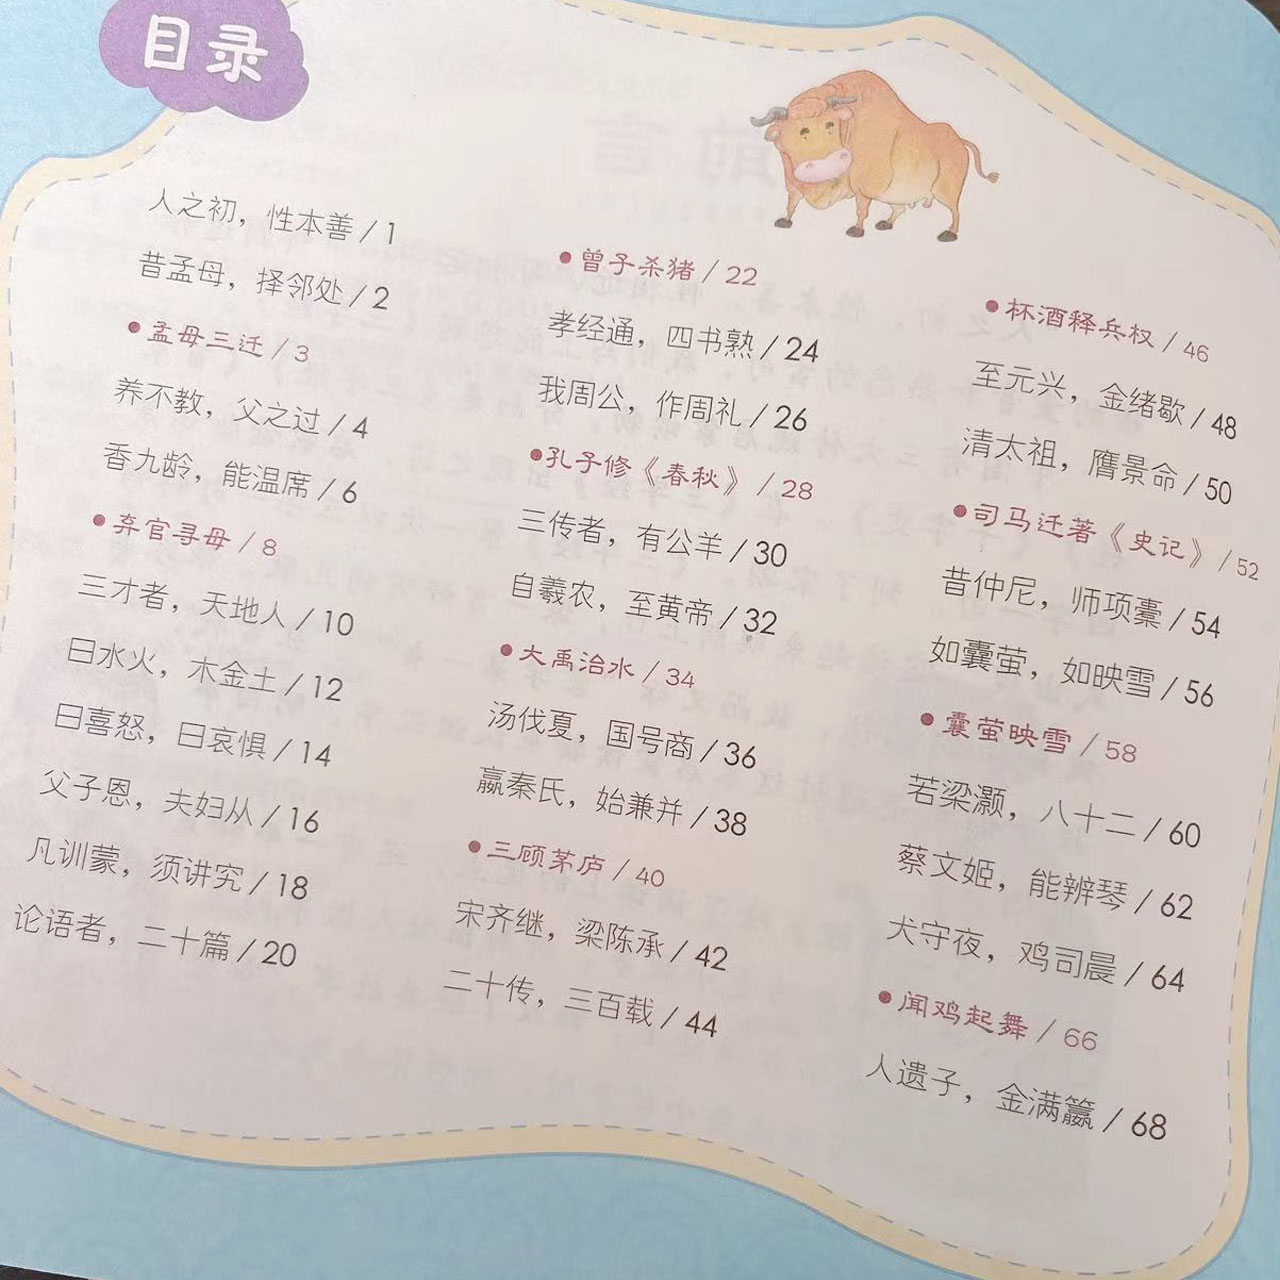 目录
人之初，性本善/1
昔孟母，择邻处/2
•孟母三迁/3
养不教，父之过/4
香九龄，能温席/6
•弃官寻母/8
三才者，天地人/10
曰水火，木金土/12
曰喜怒，曰哀惧/14
父子恩，夫妇从/16
凡训蒙，须讲究/18
论语者，二十篇/20
•曾子杀猪/22
孝经通，四书熟/24
我周公，作周礼/26
•孔子修《春秋》/28
三传者，有公羊/30
自羲农，至黄帝/32
•大禹治水/34
汤伐夏，国号商/36
嬴秦氏，始兼并/38
•三顾茅庐/40
宋齐继，梁陈承/42
二十传，三百载/44
•杯酒释兵权/46
至元兴，金绪歇/48
清太祖，膺景命/50
•司马迁著《史记》/52
昔仲尼，师项橐/54
如囊萤，如映雪/56
•囊萤映雪/58
若梁灏，八十二/60
蔡文姬，能辨琴/62
犬守夜，鸡司晨/64
•闻鸡起舞/66
人遗子，金满籯/68